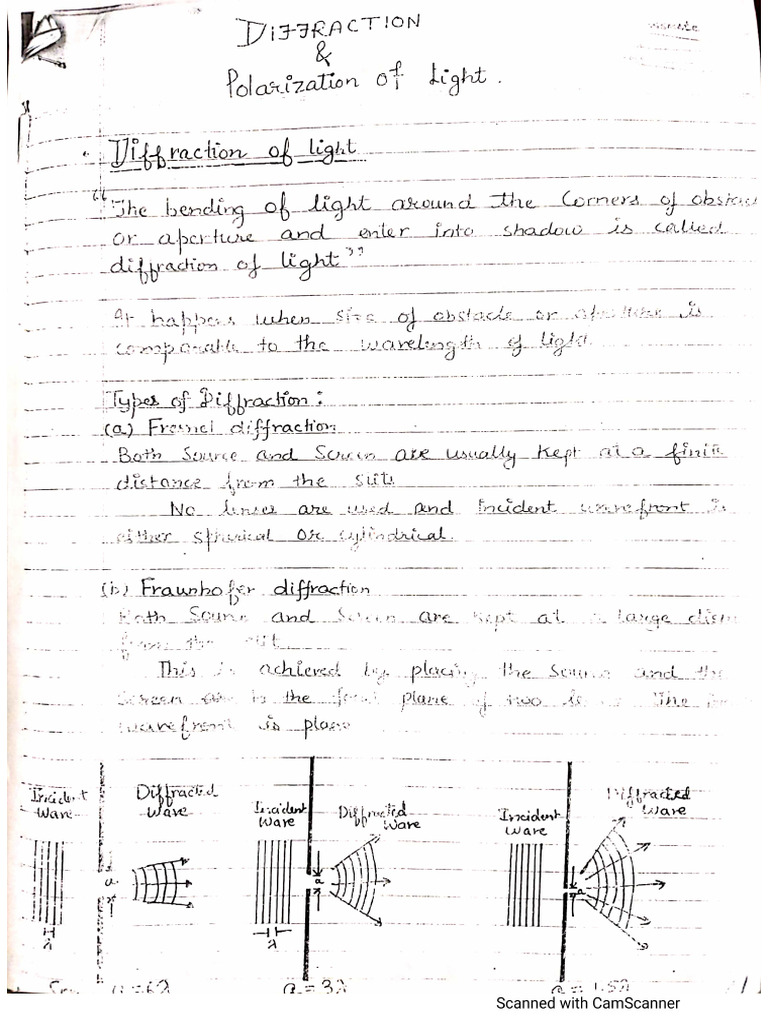 DIFFRACTION
&
Polarization of Light.
Diffraction of light
"The bending of light around the Corners of
or aperture and enter into shadow is called
diffraction of light"
It happens when size of obstacle or aperture is
comparable to the wavelength of light.
Types of Diffraction:
(a) Fresnel diffraction
Both Source and Screen are usually kept at a finite
distance from the slit
No lenses are used and incident wavefront is
either spherical or cylindrical.
(b) Fraunhofer diffraction
Both Source and Screen are kept at a large
from the slit
This is achieved by placing the Source and the
Screen are in the focal plane of two The
wavefront is plane
Incident Wave
Diffracted Wave
Incident Wave
Diffracted Wave
Incident Wave
Diffracted Wave
a
a
a
λ
λ
= 6λ
a = 3λ
a = 1.5λ
Scanned with CamScanner